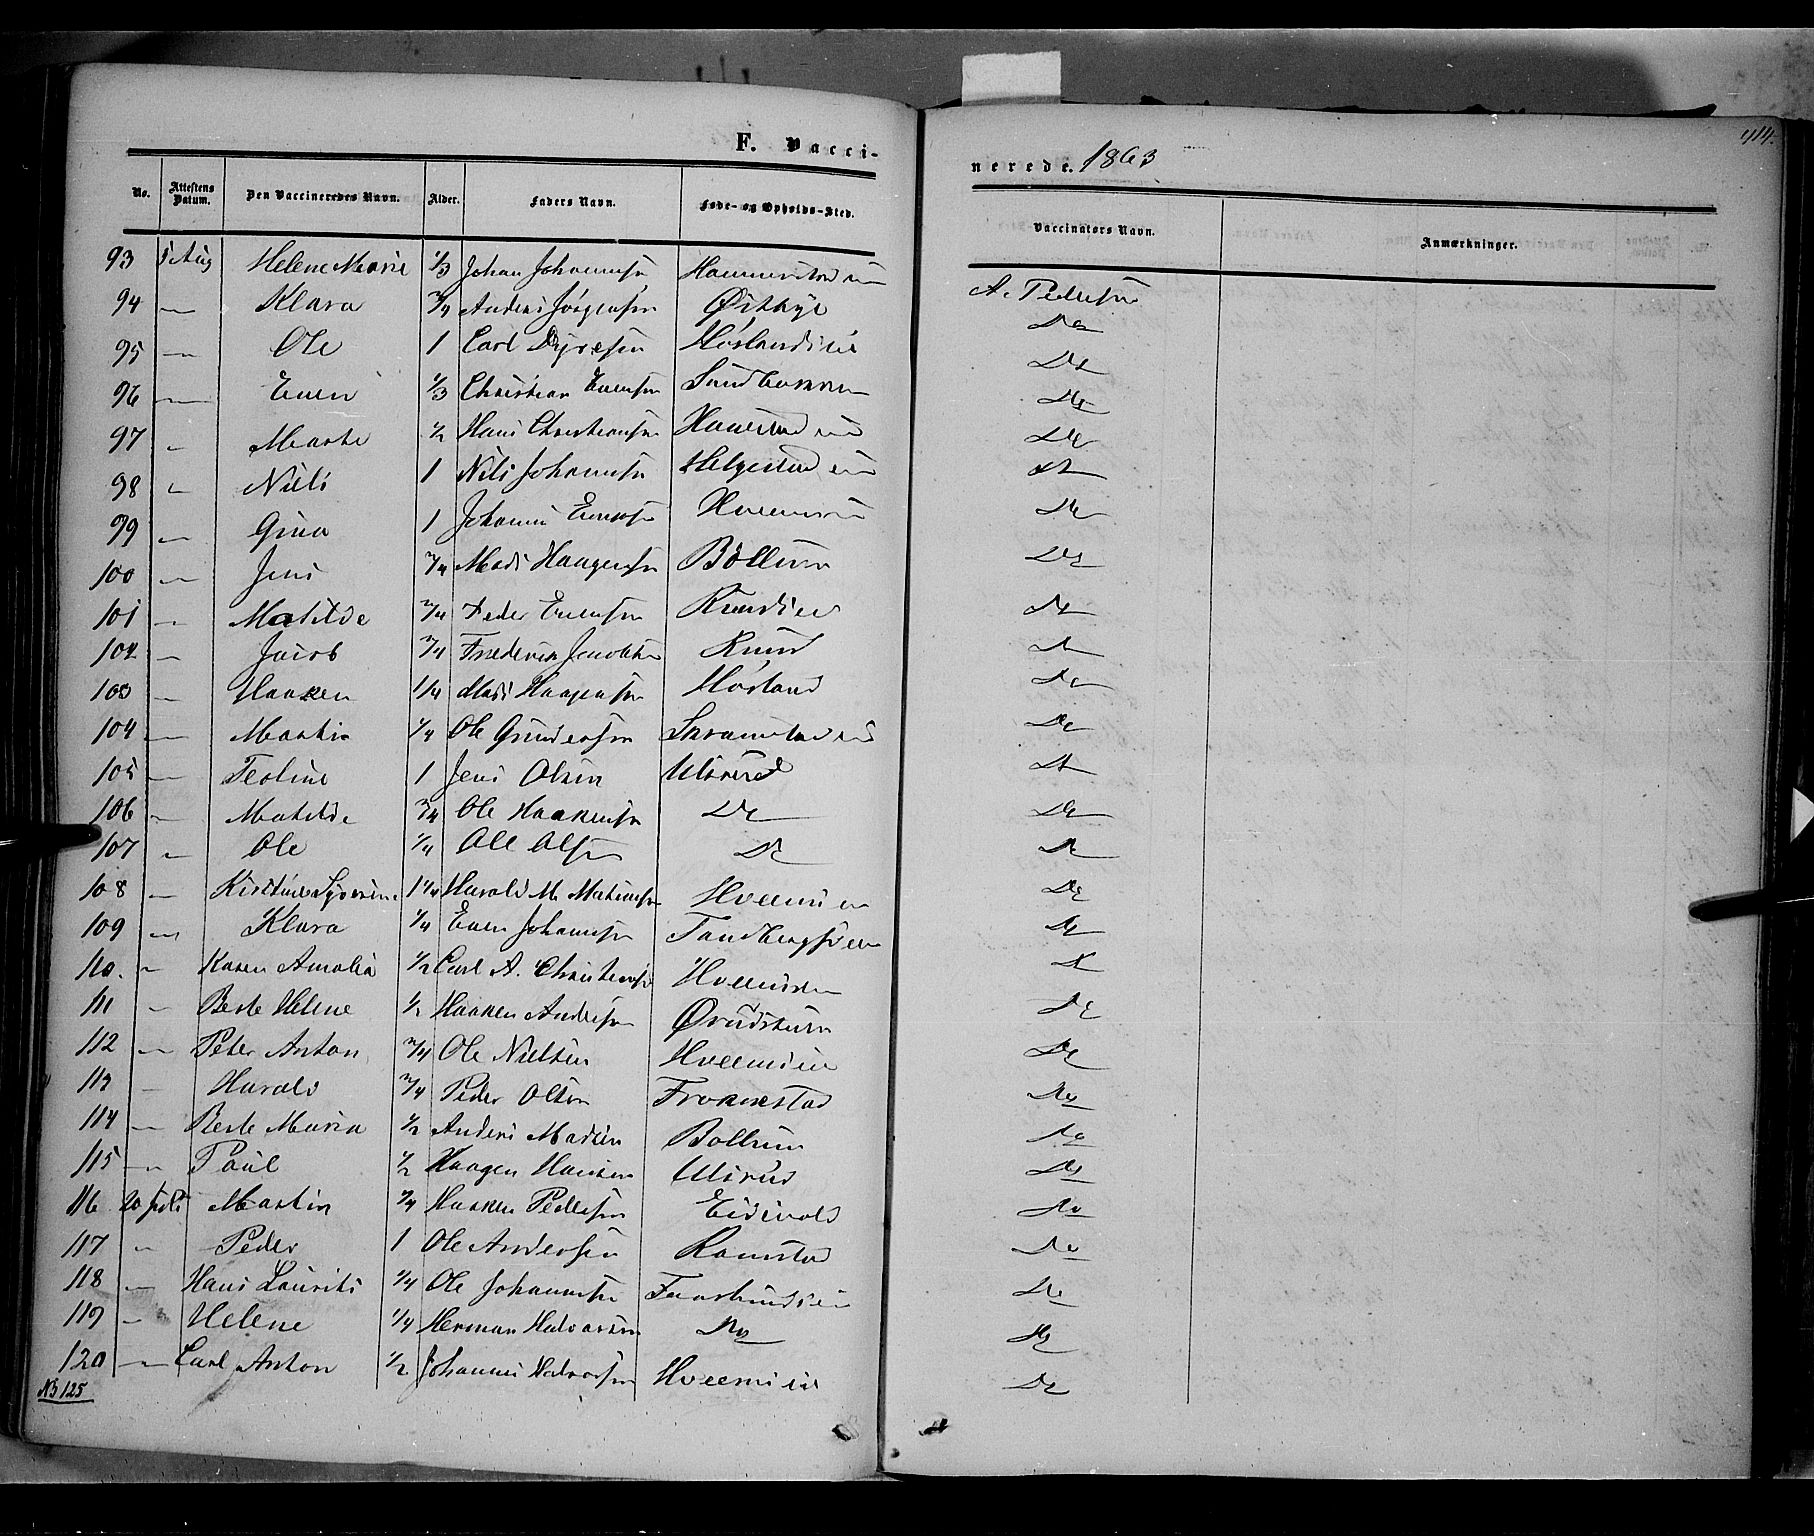 414.
F. Vacci-
nerede. 1863
No. Attestens Datum. Den Vaccineredes Navn. Alder. Faders Navn. Føde- og Opholds-Sted. Vaccinators Navn. Anmærkninger.
93 1 Aug Helene Marie 1/3 Johan Johannesen A. Pedersen
94 — Klara 3/4 Anders Jørgensen Østbye Do
95 — Ole 1 Carl Do
96 — Even 1/3 Christian Evensen Do
97 " Marte 1/2 Hans Christiansen Do
98 " Niels 1 Nils Johannesen Helgestadeie Do
99 — Gina 1 Hveemseie Do
100 — Jens 3/4 Mads Haagensen Bollum Do
101 — Matilde 3/4 Peder Evensen Do
102 — Jacob 3/4 Frederik Jacobsen Do
103 — Haaken 1/4 Mads Haagensen Do
104 — Martin 1/4 Ole Gundersen Do
105 — Teoline 1 Jens Olsen Ulsrud Do
106 — Matilde 3/4 Ole Haakensen Do Do
107 " Ole 1/4 Ole Olsen Do Do
108 — Kristine Syverine 1 1/4 Harald M. Hveemseie Do
109 — Klara 1/4 Even Johannesen Do
110. " Karen Amalia 1/2 Carl A. Christensen Hveemseie Do
111 — Berte Helene 1/2 Haaken Andersen Do
112 — Peter Anton 3/4 Ole Nielsen Hveemseie Do
113 — Harald 3/4 Peder Olsen Froknestad Do
114 — Berte Maria 1/2 Anders Madsen Bollum Do
115 — Paul 1/2 Haagen Hansen Ulsrud Do
116 20 Juli Martin 3/4 Haaken Pedersen Eidsvold Do
117 " Peder 1 Ole Andersen Ramstad Do
118 — Hans Laurits 1/4 Ole Johannesen Do
119 — Helene 1/4 Herman Halvorsen Do Do
120 — Carl Anton 1/2 Johannes Halvorsen Hveemseie Do
No 125